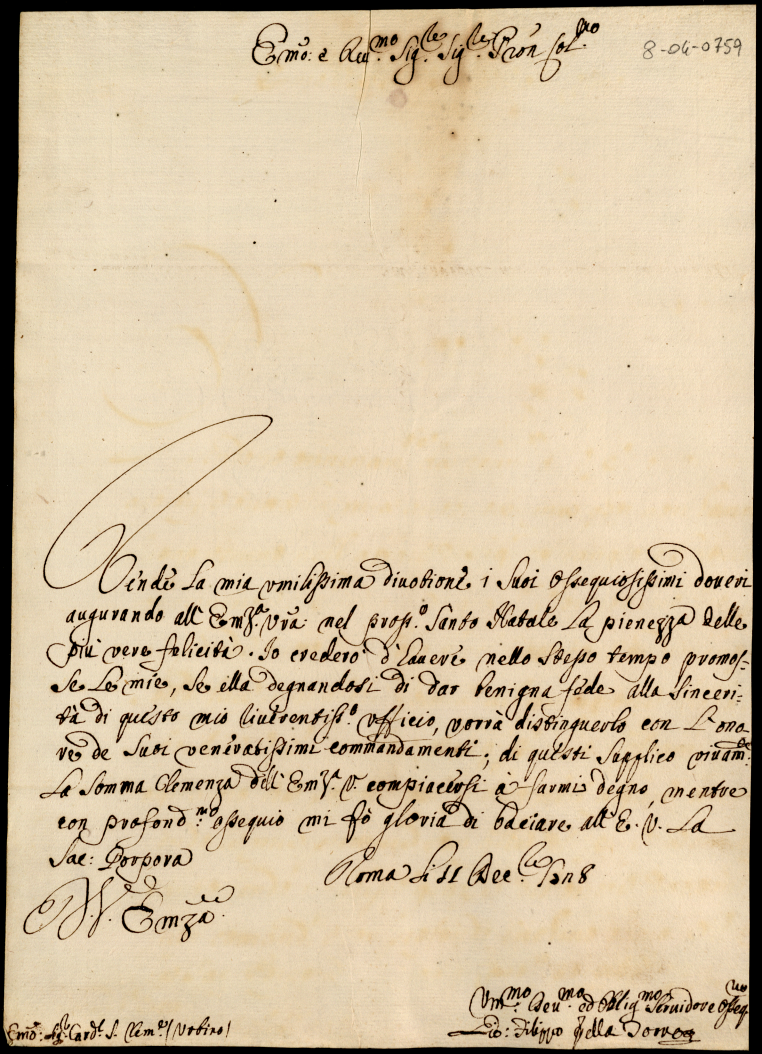 Emo: e Reu.mo Sig.re Sig.re Pron Col.mo
8-04-0759
Rende la mia vmilissima diuotione i suoi ossequiosissimi doueri
augurando all' Emz.a Vra: nel pross.o Santo Natale la pienezza delle
più vere felicità. Io crederò d'hauere nello stesso tempo promos-
se le mie, se ella degnandosi di dar benigna fede alla sinceri-
tà di questo mio riuerentiss.o vfficio, vorrà distinguerlo con l'ono-
re de suoi venératissimi commandamenti; di questi supplico viuam.e
la somma Clemenza dell' Emz.a V. compiacersi à farmi degno, mentre
con profond.mo ossequio mi fò gloria di baciare all' E. V. la
Sac: Porpora
Roma li 11 Dec.re
V. Emza
Vm.mo Deu.mo ed Oblig.mo Seruidore Osseq.mo
Gio: Filippo della Torre
Emo: Sig.r Card.l S. Clem.te (Vrbino)